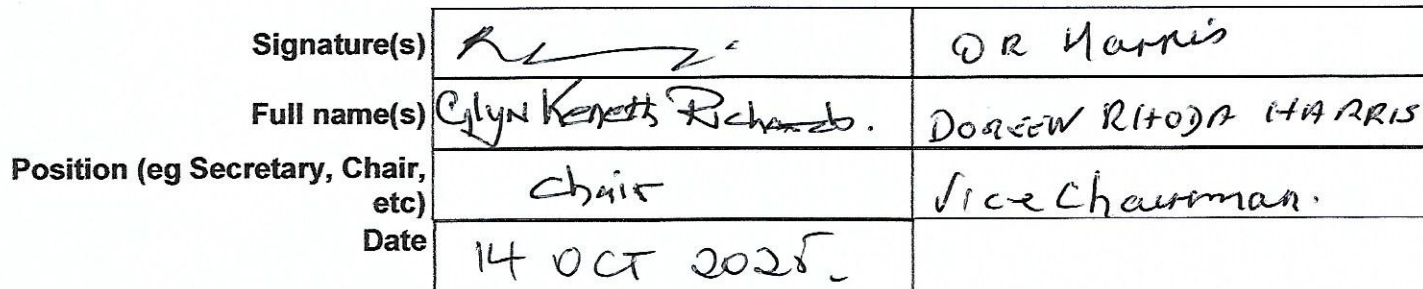 Signature(s) D R Harris
Full name(s) Glyn Keneth Richards. DOREEN RHODA HARRIS
Position (eg Secretary, Chair, etc) Chair Vice Chairman.
Date 14 OCT 2025